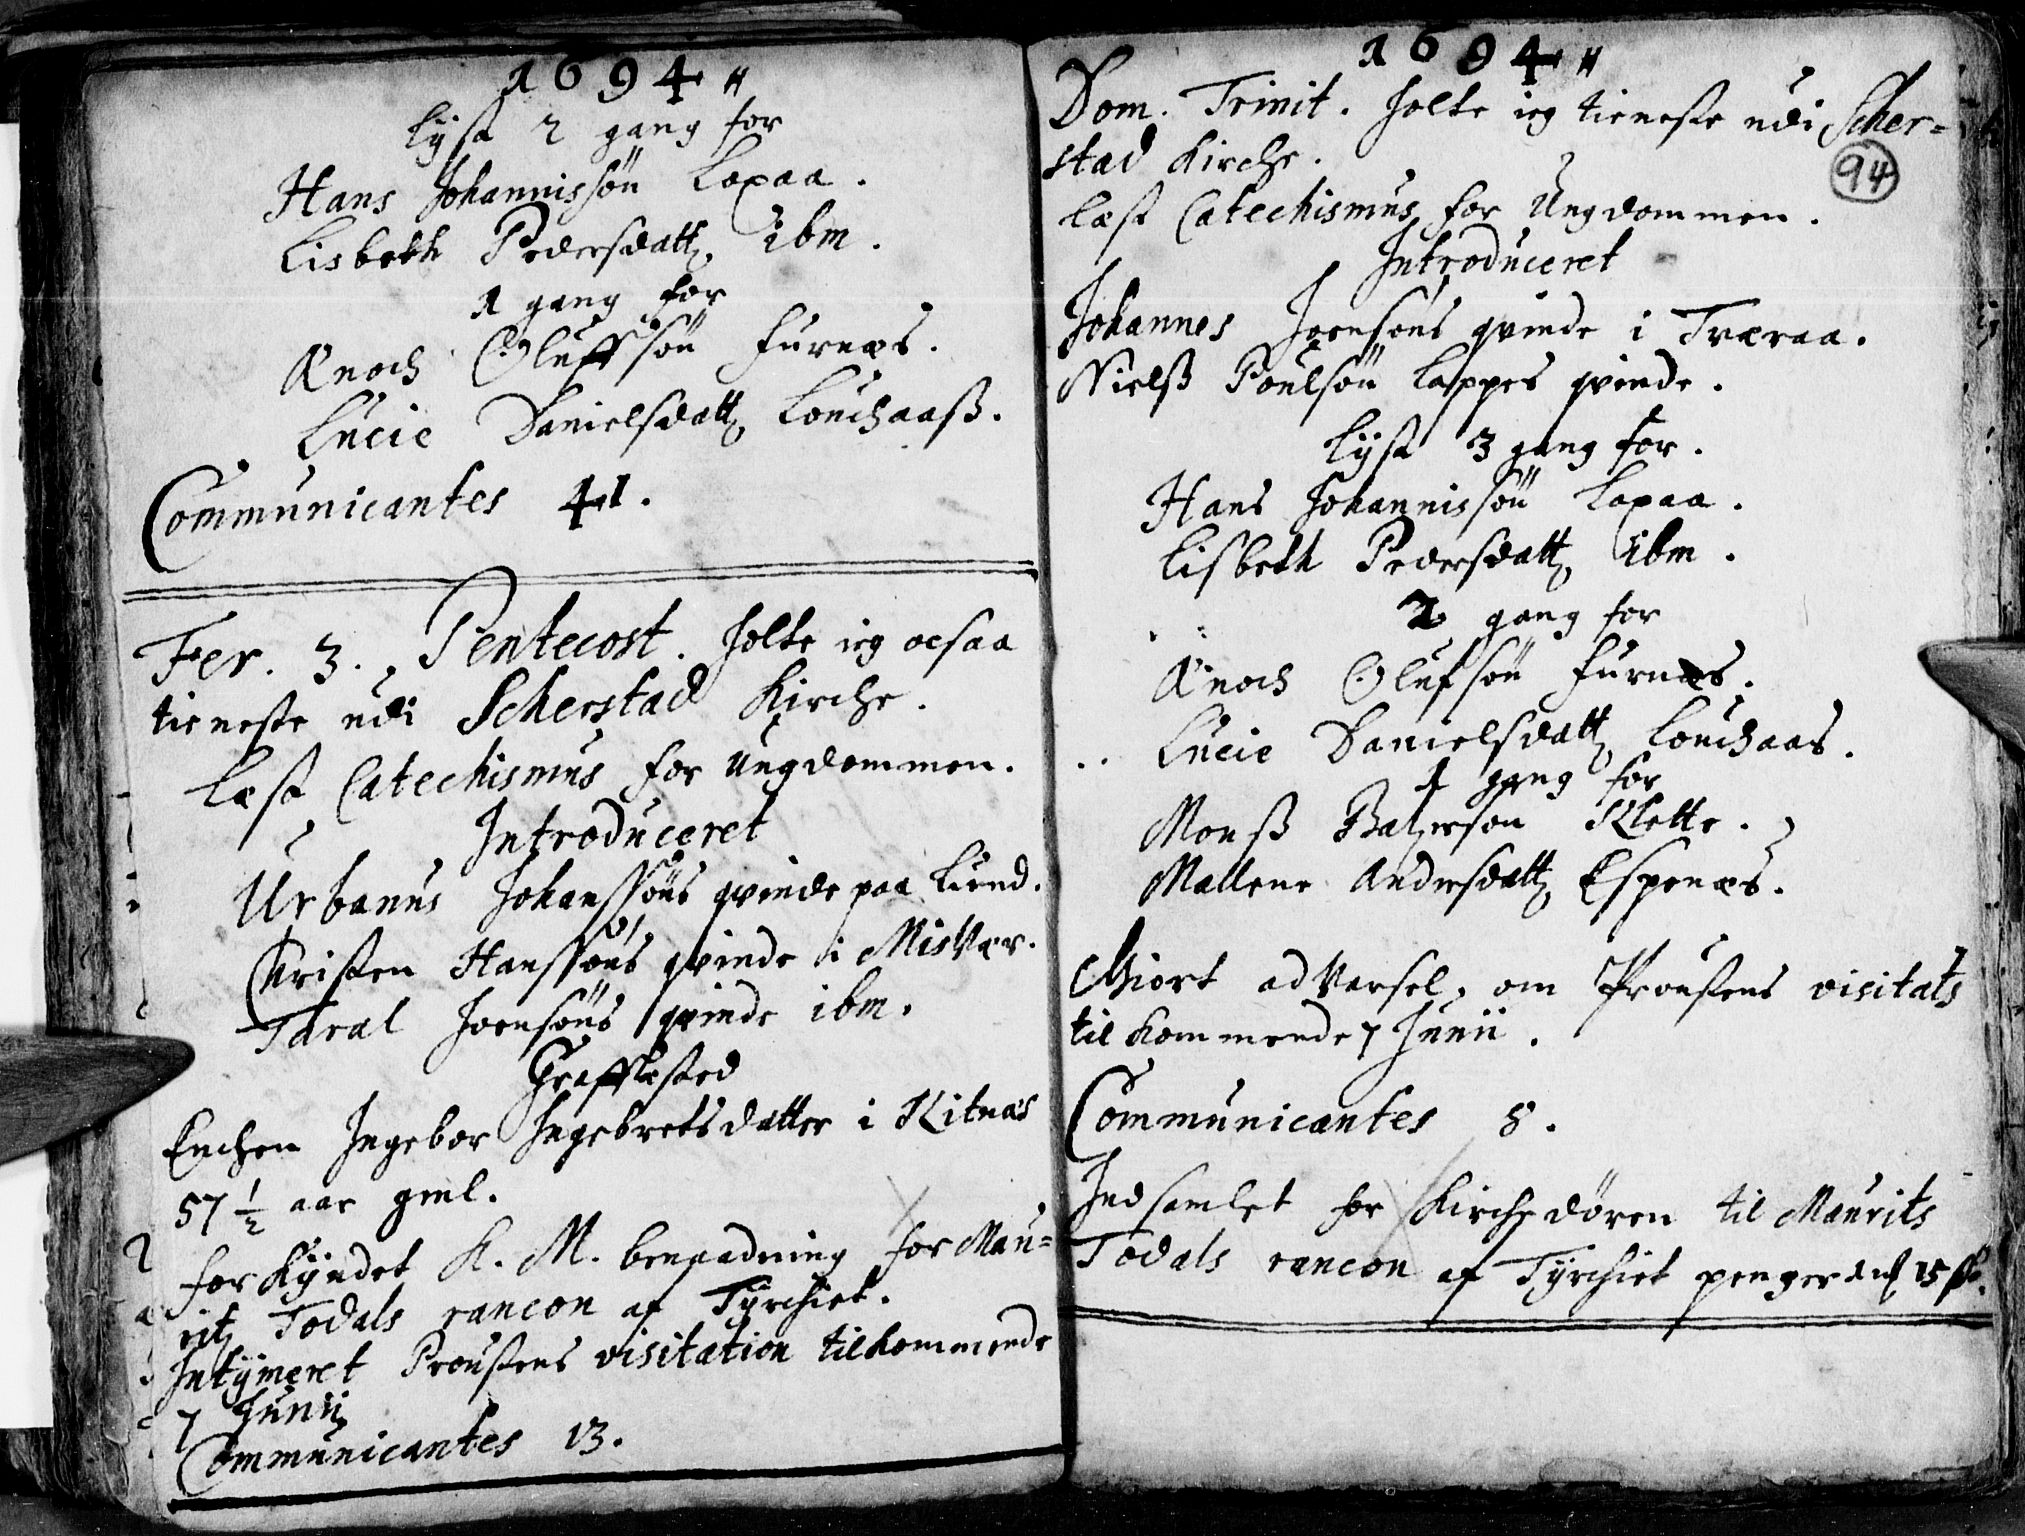 1694 "
lyst 2 gang for
Hans Johannissøn Loxaa.
Lisbeth Pedersdatt, ibm.
1 gang for
Knoch Oluffsøn Furnæs.
Lucie Danielsdatt, Louchaaß.
Communicantes 41.
Fer. 3. Pentecost. holte ieg ocsaa
tieneste udi Scherstad Kirche.
læst Catechismus for Ungdommen.
Introduceret
Urbanus Johanssøns qvinde paa Lund.
Christen Hanssøns qvinde i Misvær.
Taral Joensøns qvinde ibm.
Graffkasted
Enchen Ingebor Ingebretsdatter i Kitnæs
57 1/2 aar gml.
forkyndet K. M. benaadning for Mau=
ritz Todals rancon af Tyrchiet.
Intymeret Proustens visitation tilkommende
7 Junii
Communicantes 13.
1694 "
94
Dom. Trinit. holte ieg tieneste udi Scher=
stad Kirche.
læst Catechismus for Ungdommen.
Introduceret
Johannes Joensøns qvinde i Tværaa.
Nielß Poulsøn Lappes qvinde.
lyst 3 gang for.
Hans Johannissøn Loxaa.
Lisbeth Pedersdatt, ibm.
2 gang for
Knoch Olufsøn Furnæs.
Lucie Danielsdatt, Louchaas.
1 gang for
Monß Baltzersøn Klette.
Mallene Andersdatt, Espenæs.
Giort adVarsel, om Proustens visitats
til kommende 7 Junii.
Communicantes 8.
Indsamlet for Kirche døren til Maurits
Todals rancon af Tyrchiet penger 15 ß.